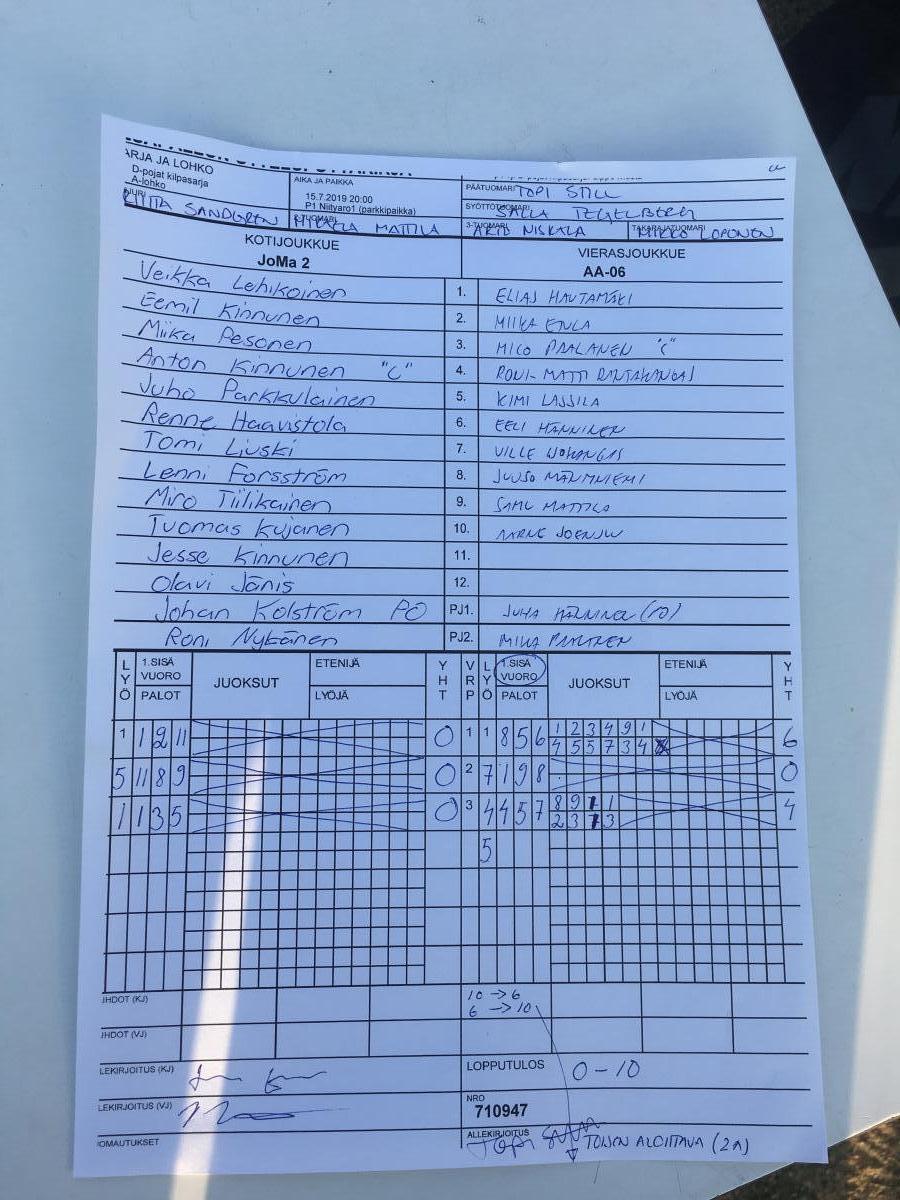 ARJA JA LOHKO
D-pojat kilpasarja
A-lohko
AIKA JA PAIKKA
15.7.2019 20:00
P1 Niityaro1 (parkkipaikka)
PÄÄTUOMARI TOPI STILL
SYÖTTÖTUOMARI
SALLA TEGELBERG
SANDGREN
MATTILA
3-TUOMARI
NISKALA
TAKARAJATUOMARI
MIKKO LOPONEN
KOTIJOUKKUE
JoMa 2
VIERASJOUKKUE
AA-06
Veikka Lehikoinen 1. ELIAS HAUTAMÄKI
Eemil Kinnunen 2. MIIKA
Miika Pesonen 3. MICO PAALANEN "C"
Anton Kinnunen "C" 4. RONI-MATTI RANTAKANGAS
Juho Parkkulainen 5. KIMI LASSILA
Renne Haavistola 6. EELI HÄNNINEN
Tomi Liuski 7. VILLE
Lenni Forsström 8. JUUSO MÄNTYNIEMI
Miro Tiilikainen 9. SAMU MATTILA
Tuomas Kujanen 10. AARNE JOENSUU
Jesse Kinnunen 11.
Olavi Jänis 12.
Johan Kolström PO PJ1. JUHA HÄNNINEN (PO)
Roni Nykänen PJ2. MIKA PAALANEN
LYÖ 1.SISÄ VUORO PALOT JUOKSUT ETENIJÄ LYÖJÄ YHT VRP LYÖ 1.SISÄ VUORO PALOT JUOKSUT ETENIJÄ LYÖJÄ YHT
1 1 2 11 0 1 1 8 5 6 1 2 3 4 9 1 6
4 5 5 7 3 4
5 11 8 9 0 2 7 1 9 8 0
1 1 3 5 0 3 4 4 5 7 8 9 1 1 4
2 3 1 3
5
JHDOT (KJ)
10 → 6
6 → 10
JHDOT (VJ)
LEKIRJOITUS (KJ)
LOPPUTULOS 0-10
LEKIRJOITUS (VJ)
NRO
710947
OMAUTUKSET
ALLEKIRJOITUS
Topi
TOISEN ALOITTAVA (2A)